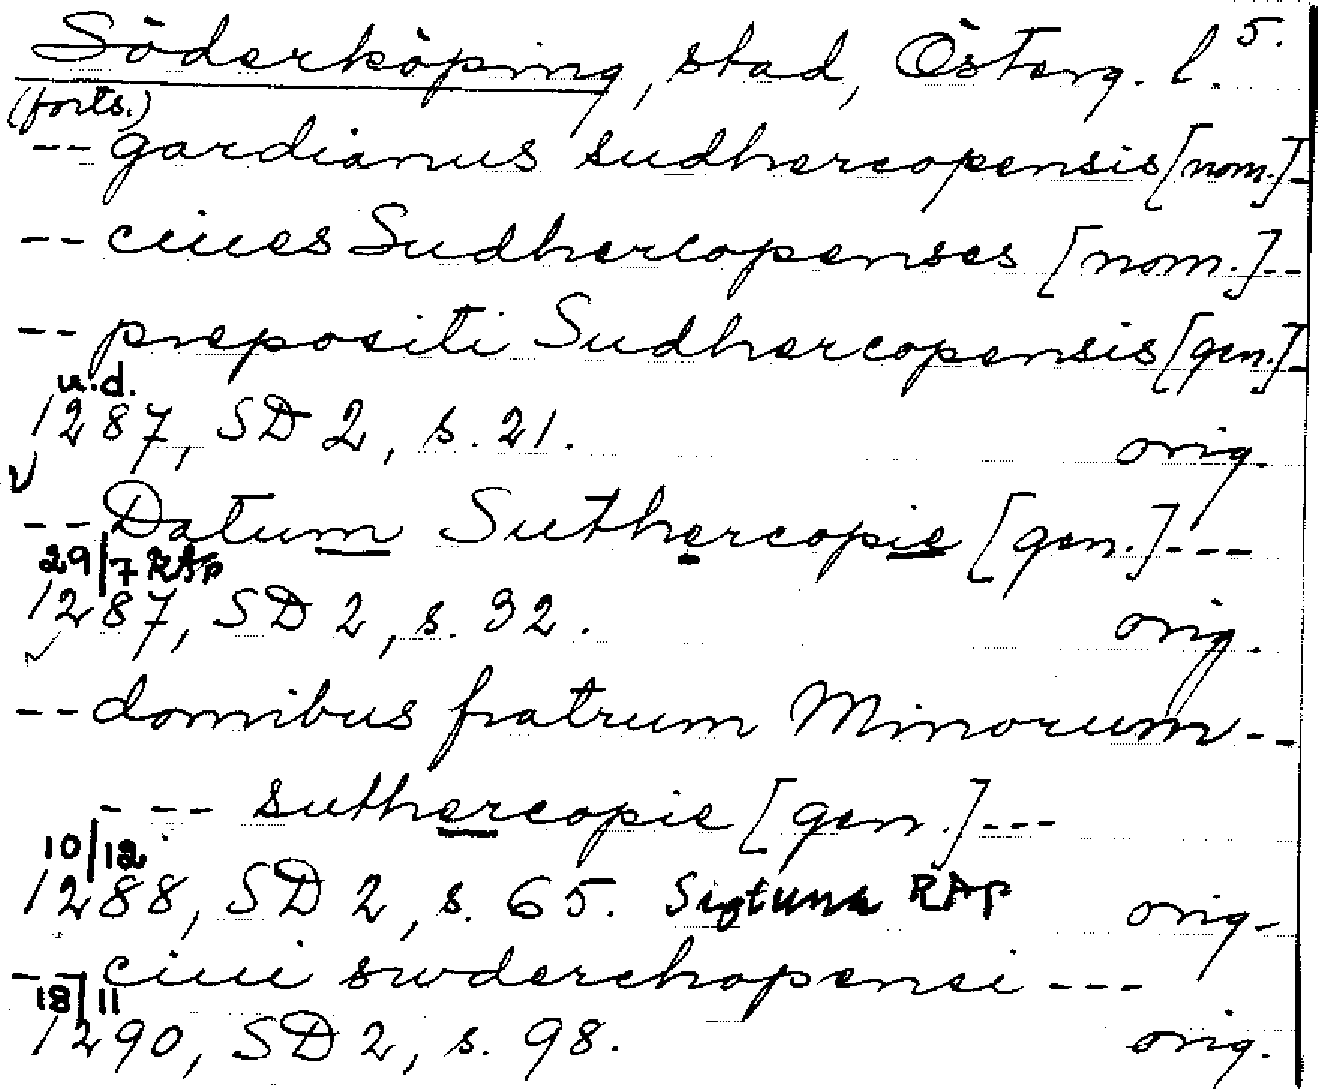 Söderköping, stad, Österg. l. 5.
(forts.)
-- gardianus sudhercopensis [nom.] -
-- ciues Sudhercopenses [nom.] --
-- prepositi Sudhercopensis [gen.] -
u.d.
1287, SD 2, s. 21. orig.
-- Datum Suthercopie [gen.] ---
29/7 RAp
1287, SD 2, s. 32. orig.
-- domibus fratrum Minorum --
--- suthercopie [gen.] ---
10/12
1288, SD 2, s. 65. Sigtuna RAp orig.
-- ciui swderchopensi ---
18/11
1290, SD 2, s. 98. orig.